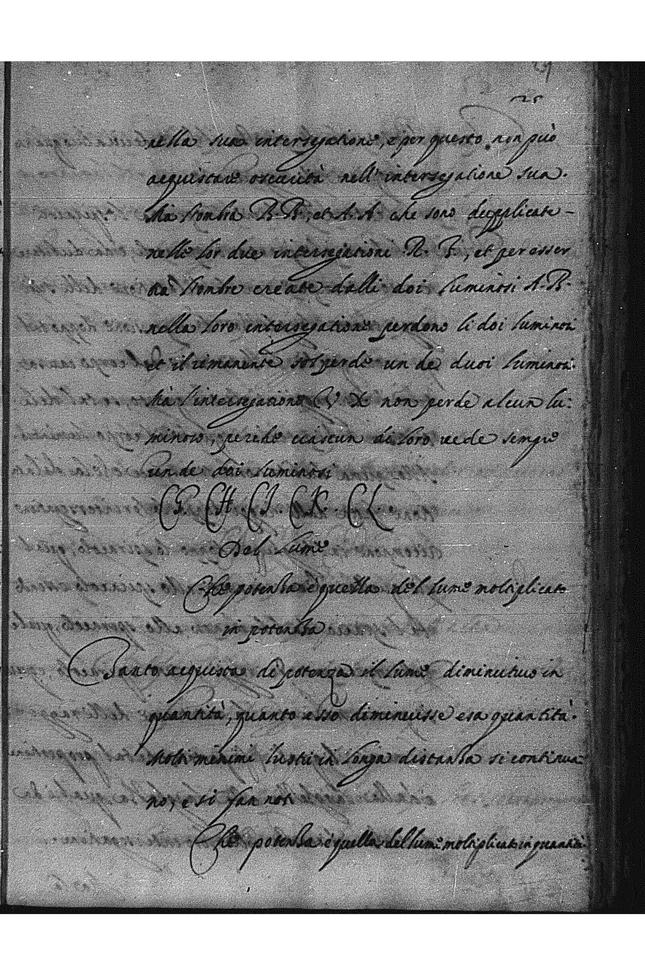 29
25
nella sua intersegatione, e per questo non può
acquistare oscurità nell' intersegatione sua.
Ma l'ombra B.R, et A.A che sono dupplicate
nelle lor due intersegationi R. F, et per esser
tta l'ombre create dalli doi luminosi A.B.
nella loro intersegatione perdono li doi luminosi
et il rimanente sol perde un de duoi luminosi.
Ma l'intersegatione V X non perde alcun lu:
minoso, perche ciascun di loro vede sempre
un de doi luminosi
G H I K L
Del lume
Che potenza è quella del lume moltiplicato
in potenza
Tanto acquista di potenza il lume diminutivo in
quantità, quanto esso diminuisse esa quantità.
Molti minimi lustri in longa distanza si continua
no, e si fan noti
Che potenza è quella del lume moltiplicato in quantità